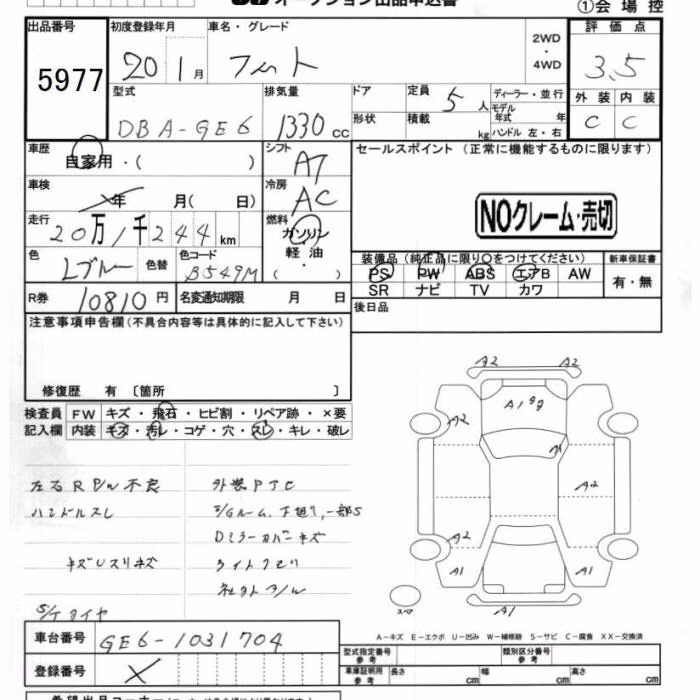 オークション出品申込書
①会場控
出品番号 初度登録年月 車名・グレード 2WD・4WD 評価点
5977 20 1月 フィット 3.5
型式 排気量 ドア 定員 5人 ディーラー・並行 外装 内装
DBA-GE6 1330cc 形状 積載 kg モデル年式 年 ハンドル 左・右 C C
車歴 自家用・( ) シフト AT セールスポイント (正常に機能するものに限ります)
車検 年 月( 日) 冷房 AC
NOクレーム・売切
走行 20万1千244km 燃料 ガソリン・軽油・( )
色 Lブルー 色替 色コード B549M
装備品(純正品に限り○をつけてください) 新車保証書
PS PW ABS エアB AW 有・無
SR ナビ TV カワ
R券 10810円 名変通知期限 月 日
後日品
注意事項申告欄(不具合内容等は具体的に記入して下さい)
修復歴 有 〔箇所 〕
検査員 FW キズ・飛石・ヒビ割・リペア跡・×要
記入欄 内装 キズ・汚レ・コゲ・穴・スレ・キレ・破レ
左右RP/W不良 外装PTC
ハンドルスレ
Dミラーカバーキズ
キズUスリキズ ライトクモリ
S/Tタイヤ
A2 A2
A1
A2 A1
A2
A2
A1 A1
スペア A1
A-キズ E-エクボ U-凹み W-補修跡 S-サビ C-腐食 XX-交換済
車台番号 GE6-1031704
登録番号 X
型式指定番号 参考 類別区分番号 参考
車庫証明用 参考 長さ cm 幅 cm 高さ cm